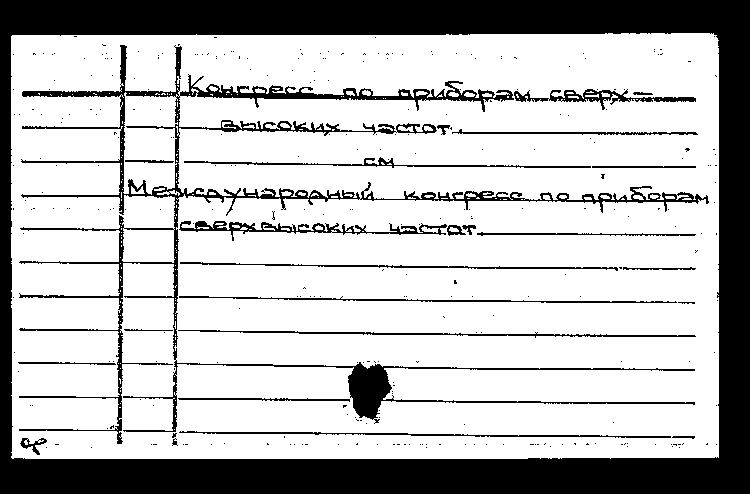 Конгресс по приборам сверх-
высоких частот.
см
Международный конгресс по приборам
сверхвысоких частот.